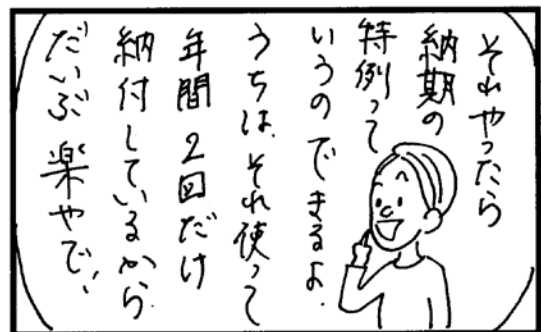 それやったら
納期の
特例って
いうのできるよ.
うちは、それ使って
年間2回だけ
納付しているから
だいぶ楽やで、